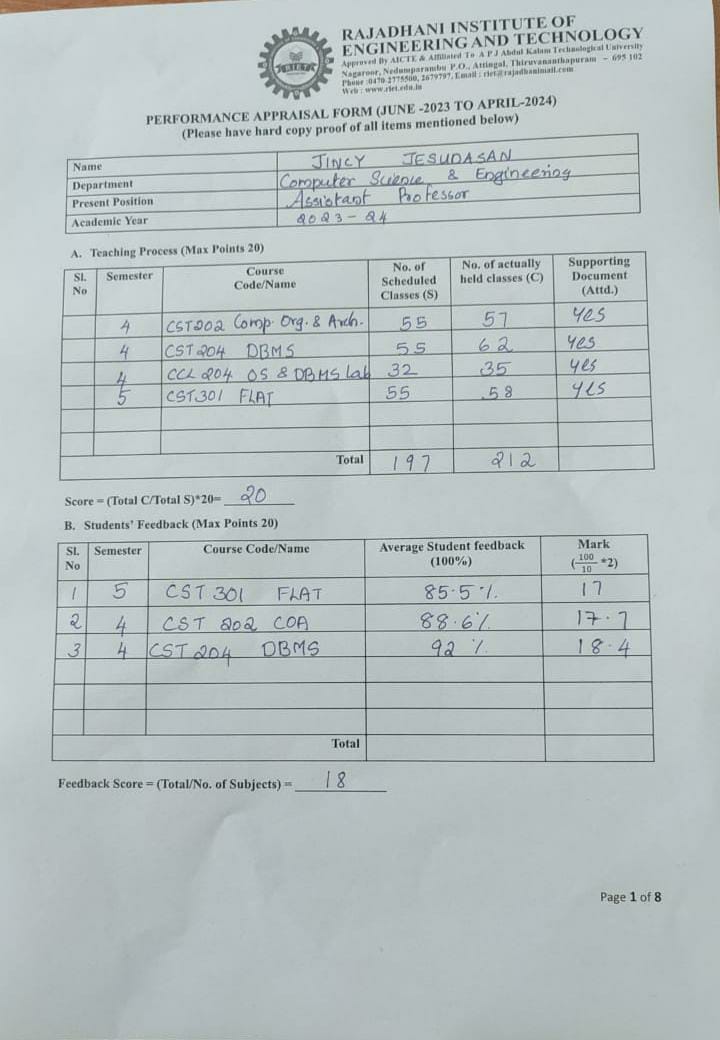 RIET
RAJADHANI INSTITUTE OF
ENGINEERING AND TECHNOLOGY
Approved By AICTE & Affiliated To A P J Abdul Kalam Technological University
Nagaroor, Nedumparambu P.O., Attingal, Thiruvananthapuram - 695 102
Phone :0470-2775500, 2679797, Email : riet@rajadhanimail.com
Web : www.riet.edu.in
PERFORMANCE APPRAISAL FORM (JUNE -2023 TO APRIL-2024)
(Please have hard copy proof of all items mentioned below)
Name JINCY JESUDASAN
Department Computer Science & Engineering
Present Position Assistant Professor
Academic Year 2023-24
A. Teaching Process (Max Points 20)
Sl. No Semester Course Code/Name No. of Scheduled Classes (S) No. of actually held classes (C) Supporting Document (Attd.)
4 CST202 Comp. Org. & Arch. 55 57 yes
4 CST204 DBMS 55 62 yes
4 CCL 204 OS & DBMS lab 32 35 yes
5 CST301 FLAT 55 58 yes
Total 197 212
Score = (Total C/Total S)*20= 20
B. Students' Feedback (Max Points 20)
Sl. No Semester Course Code/Name Average Student feedback (100%) Mark (100/10 *2)
1 5 CST 301 FLAT 85.5% 17
2 4 CST 202 COA 88.6% 17.7
3 4 CST 204 DBMS 92 % 18.4
Total
Feedback Score = (Total/No. of Subjects) = 18
Page 1 of 8